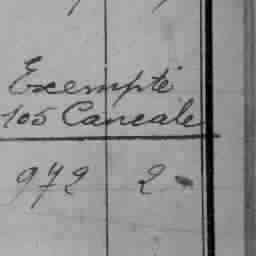 Exempté
105 Cancale
972 2-